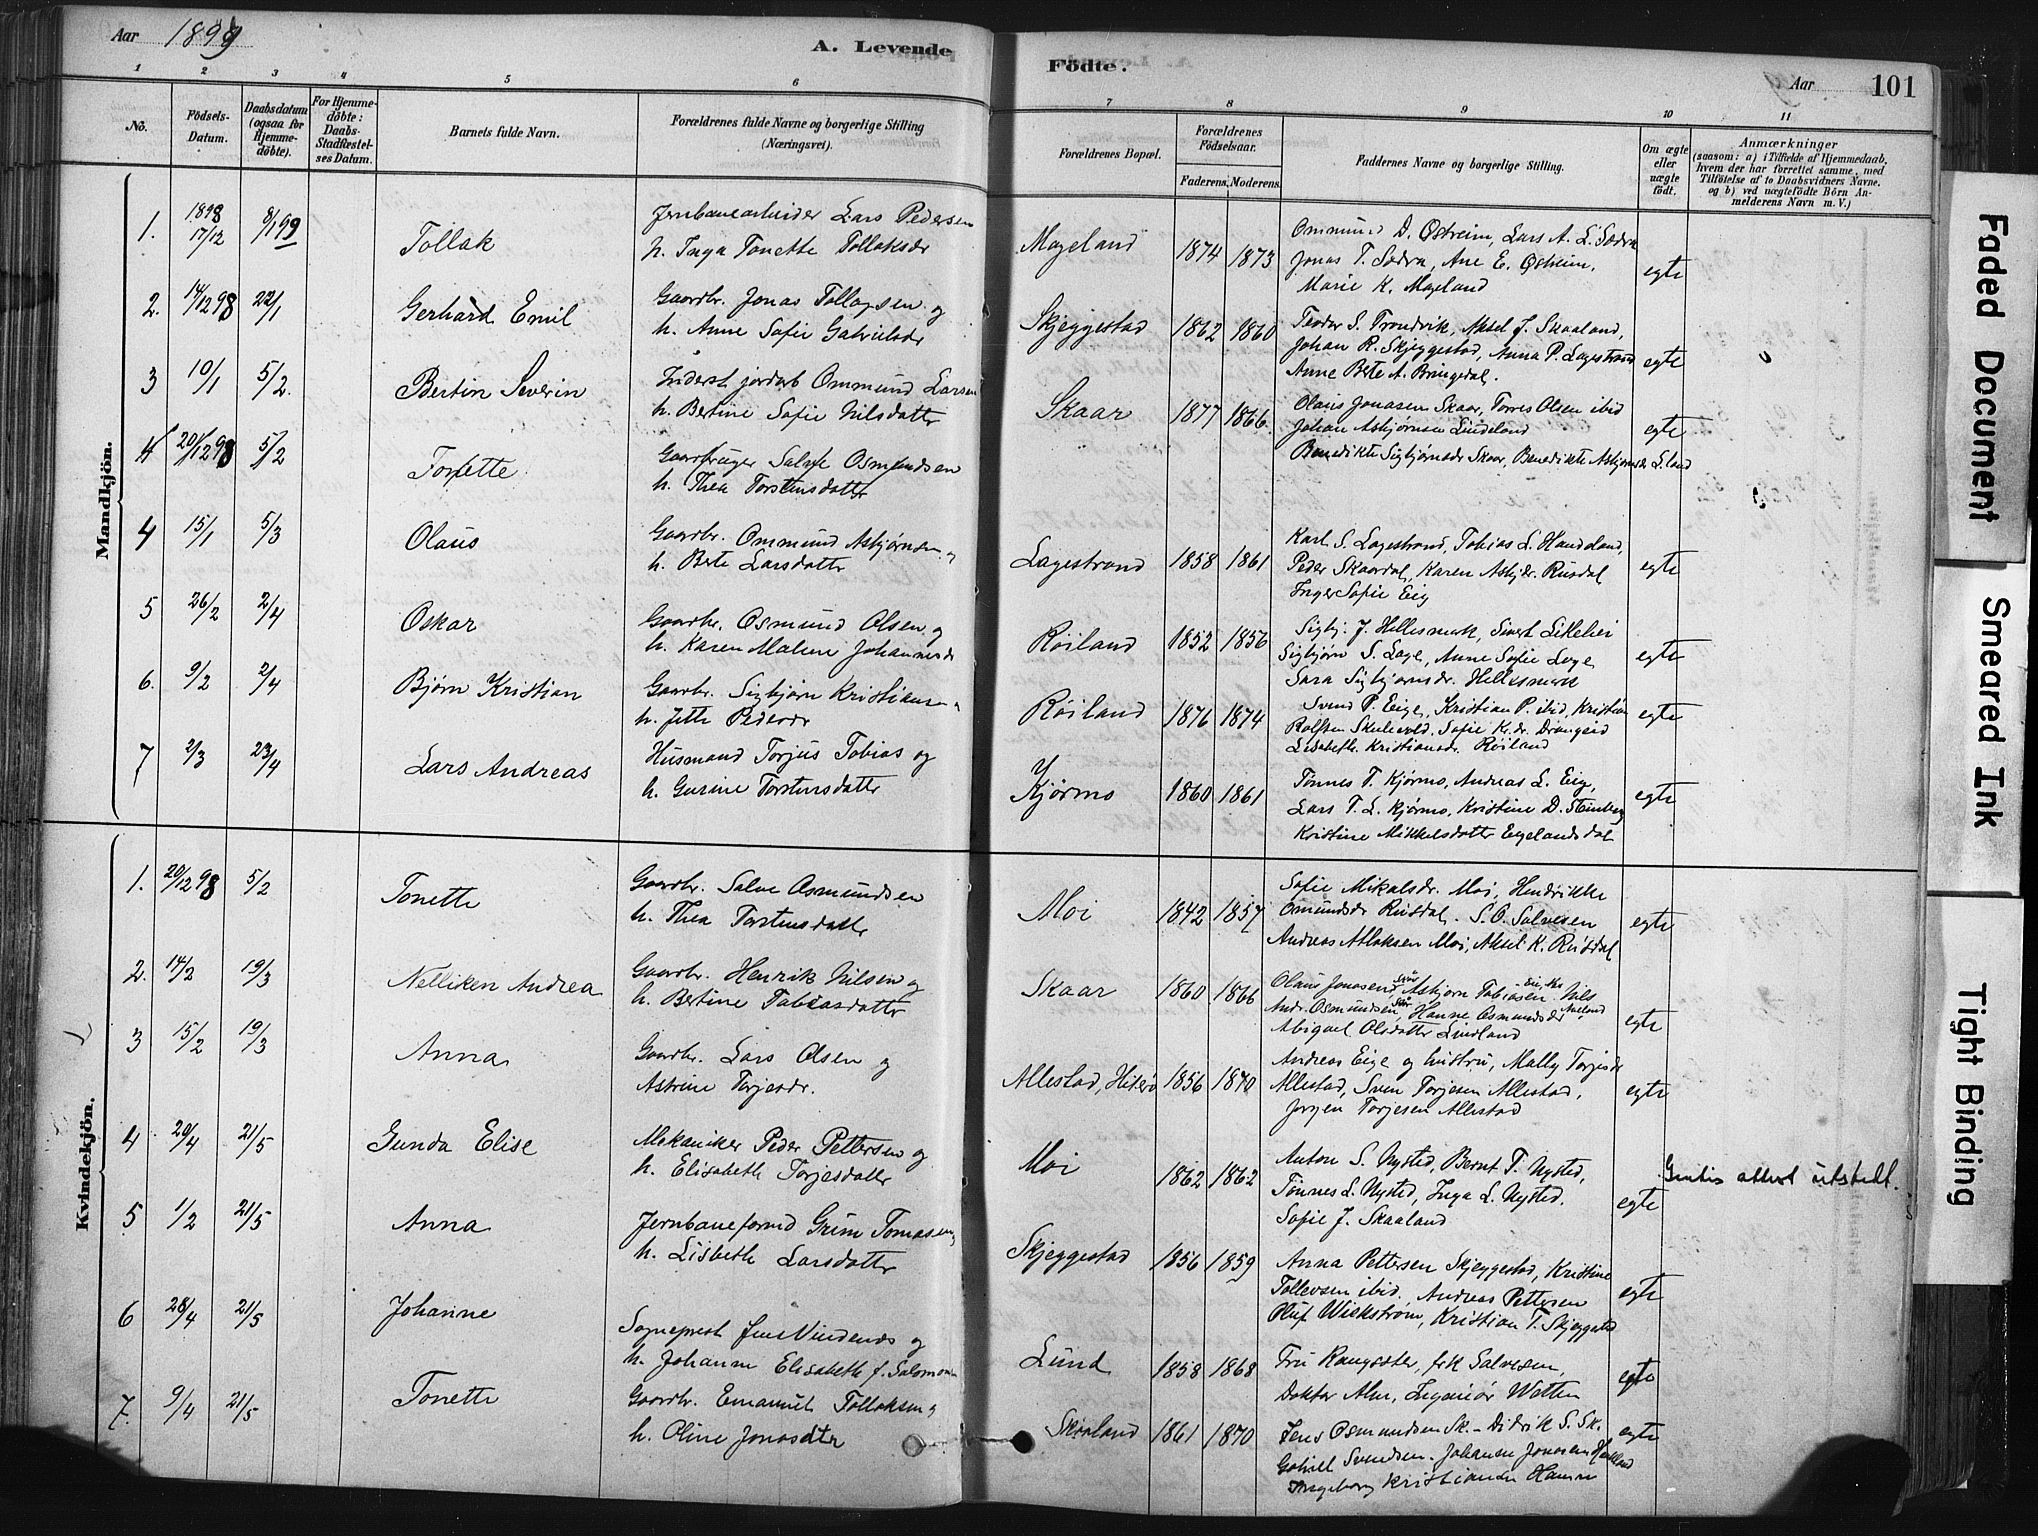 Aar 1899
A. Levende
Födte.
Aar
101
1 2 3 4 5 6 7 8 9 10 11
No.
Födsels-Datum.
Daabsdatum (ogsaa for Hjemme-döbte).
For Hjemme-döbte: Daabs-Stadfæstel-ses Datum.
Barnets fulde Navn.
Forældrenes fulde Navne og borgerlige Stilling (Næringsvei).
Forældrenes Bopæl.
Forældrenes Födselsaar.
Faderens. Moderens.
Faddernes Navne og borgerlige Stilling.
Om ægte eller uægte födt.
Anmærkninger
(saasom: a) i Tilfælde af Hjemmedaab, hvem der har forrettet samme, med Tilföielse af to Daabsvidners Navne, og b) ved uægtefödte Börn An-melderens Navn m. V.)
Mandkjön.
1. 1898 17/12 8/1 99 Tollak
Jernbanearbeider Lars Pedersen
h. Inga Tonette Tollaksdr
Mageland 1874 1873
Ommund D. Østreim, Lars A. L. Sødra
Jonas T. Sødra, Ane E. Østreim,
Marie K. Mageland
egte
2. 14/12 98 22/1 Gerhard Emil
Gaardbr. Jonas Tollagsen og
h. Anne Sofie Gabrielsdr
Skjeggestad 1862 1860
Teodor S. Trondvik, Aksel J. Skaaland,
Johan R. Skjeggestad, Anna P. Lagestrand
Anne Bete A. Bringedal.
egte
3 10/1 5/2. Bertin Severin
Inderst jordarb Ommund Larsen
h. Bertine Sofie Nilsdatter
Skaar 1877 1866.
Olaus Jonasen Skaar, Torres Olsen ibid
Johan Asbjørnsen Lindeland
Benedikte Sigbjørnsdr Skaar, Benedikte Asbjørnsdr L.land
egte
4 20/12 98 5/2 Tonette
Gaardbruger Salve Osmundsen
h. Thea Torstensdatter
4 15/1 5/3 Olaus
Gaardbr. Ommund Asbjørnsen og
h. Berte Larsdatter
Lagestrand 1858 1861
Karl S. Lagestrand, Tobias L. Handeland,
Peder Skaardal, Karen Asbjdr. Rusdal
Inger Sofie Eig
egte
5 26/2 2/4 Oskar
Gaardbr. Osmund Olsen og
h. Karen Malene Johannesdr
Røiland 1852 1856
Sigbj. J. Hellesmark, Sivert Likelhei
Sigbjørn S. Lage, Anne Sofie Lage
Sara Sigbjørnsdr. Hellesmark
egte
6. 9/2 2/4 Bjørn Kristian
Gaardbr. Sigbjørn Kristiansen
h. Jette Pedersdr
Røiland 1876 1874
Svend P. Eige, Kristian P. ibid, Kristian
Rolfsen Skulevold, Sofie Kr.dr. Drangeid
Lisabeth Kristiansdr. Røiland
egte
7 2/3 23/4 Lars Andreas
Husmand Torjus Tobias og
h. Gurine Torstensdatter
Kjørmo 1860 1861
Tønnes T. Kjørmo, Andreas L. Eig,
Lars T. L. Kjørmo, Kristine D. Steinberg
Kristine Mikkelsdatter Eigelandsdal
egte
Kvindekjön.
1. 20/12 98 5/2 Tonette
Gaardbr. Salve Osmundsen
h. Thea Torstensdatter
Moi 1842 1857
Sofie Mikalsdr. Moi, Hendrikke
Omundsdr Rusdal. S. O. Salvesen
Andreas Atlaksen Moi, Aksel K. Rusdal
egte
2. 14/2 19/3 Nelliken Andrea
Gaardbr. Henrik Nilsen og
h. Bertine Tobiasdatter
Skaar 1860 1866
Olaus Jonasen Skår Asbjørn Tobiasen Nils
Andr. Osmundsen Skår, Hanne Osmundsdr
Abigael Olsdatter Lindland
egte
3 15/2 19/3 Anna
Gaardbr. Lars Olsen og
Astrine Torjersdr.
Allestad, Hiterø 1856 1870
Andreas Eige og hustru, Mally Torjesdr
Allestad, Sven Torjesen Allestad,
Jørgen Torjesen Allestad
egte
4 20/4 21/5 Gunda Elise
Mekaniker Peder Pettersen og
h. Elisabeth Torjesdatter
Moi 1862 1862
Anton S. Nysted, Bernt T. Nysted,
Tønnes L. Nysted, Inga L. Nysted.
Sofie J. Skaaland
egte
Gratis attest utstedt.
5 1/2 21/5 Anna
Jernbaneformd Grim Tomasen
h. Lisbeth Larsdatter
Skjeggestad 1856 1859
Anna Pettersen Skjeggestad, Kristine
Tollevsen ibid. Andreas Pettersen
Oluf Wickstrøm, Kristian T. Skjeggestad
egte
6 28/4 21/5 Johanne
Sogneprest Jens Vindenæs og
h. Johanne Elisabeth f. Salomon
Lund 1858 1868
Fru Kongsster, frk Salvesen,
Doktor Alm, Ingeniør Wetten
egte
7. 9/4 21/5 Tonette
Gaardbr. Emanuel Tollaksen og
h. Oline Jonasdtr
Skaaland 1861 1870
Jens Osmundsen Sk. - Didrik S. Sk.
Gabriel Svendsen. Johanne Jonasen
Ingeborg Kristiansen Hamre
egte
Faded Document
Smeared Ink
Tight Binding